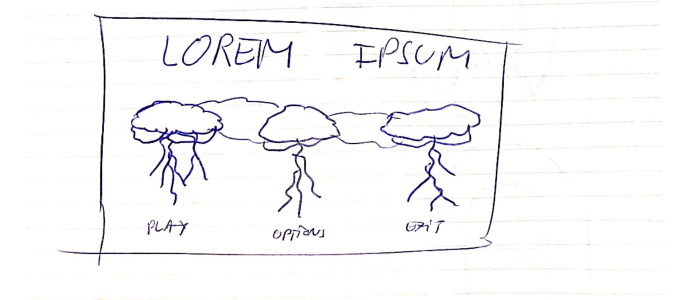 LOREM IPSUM
PLAY OPTIONS EXIT